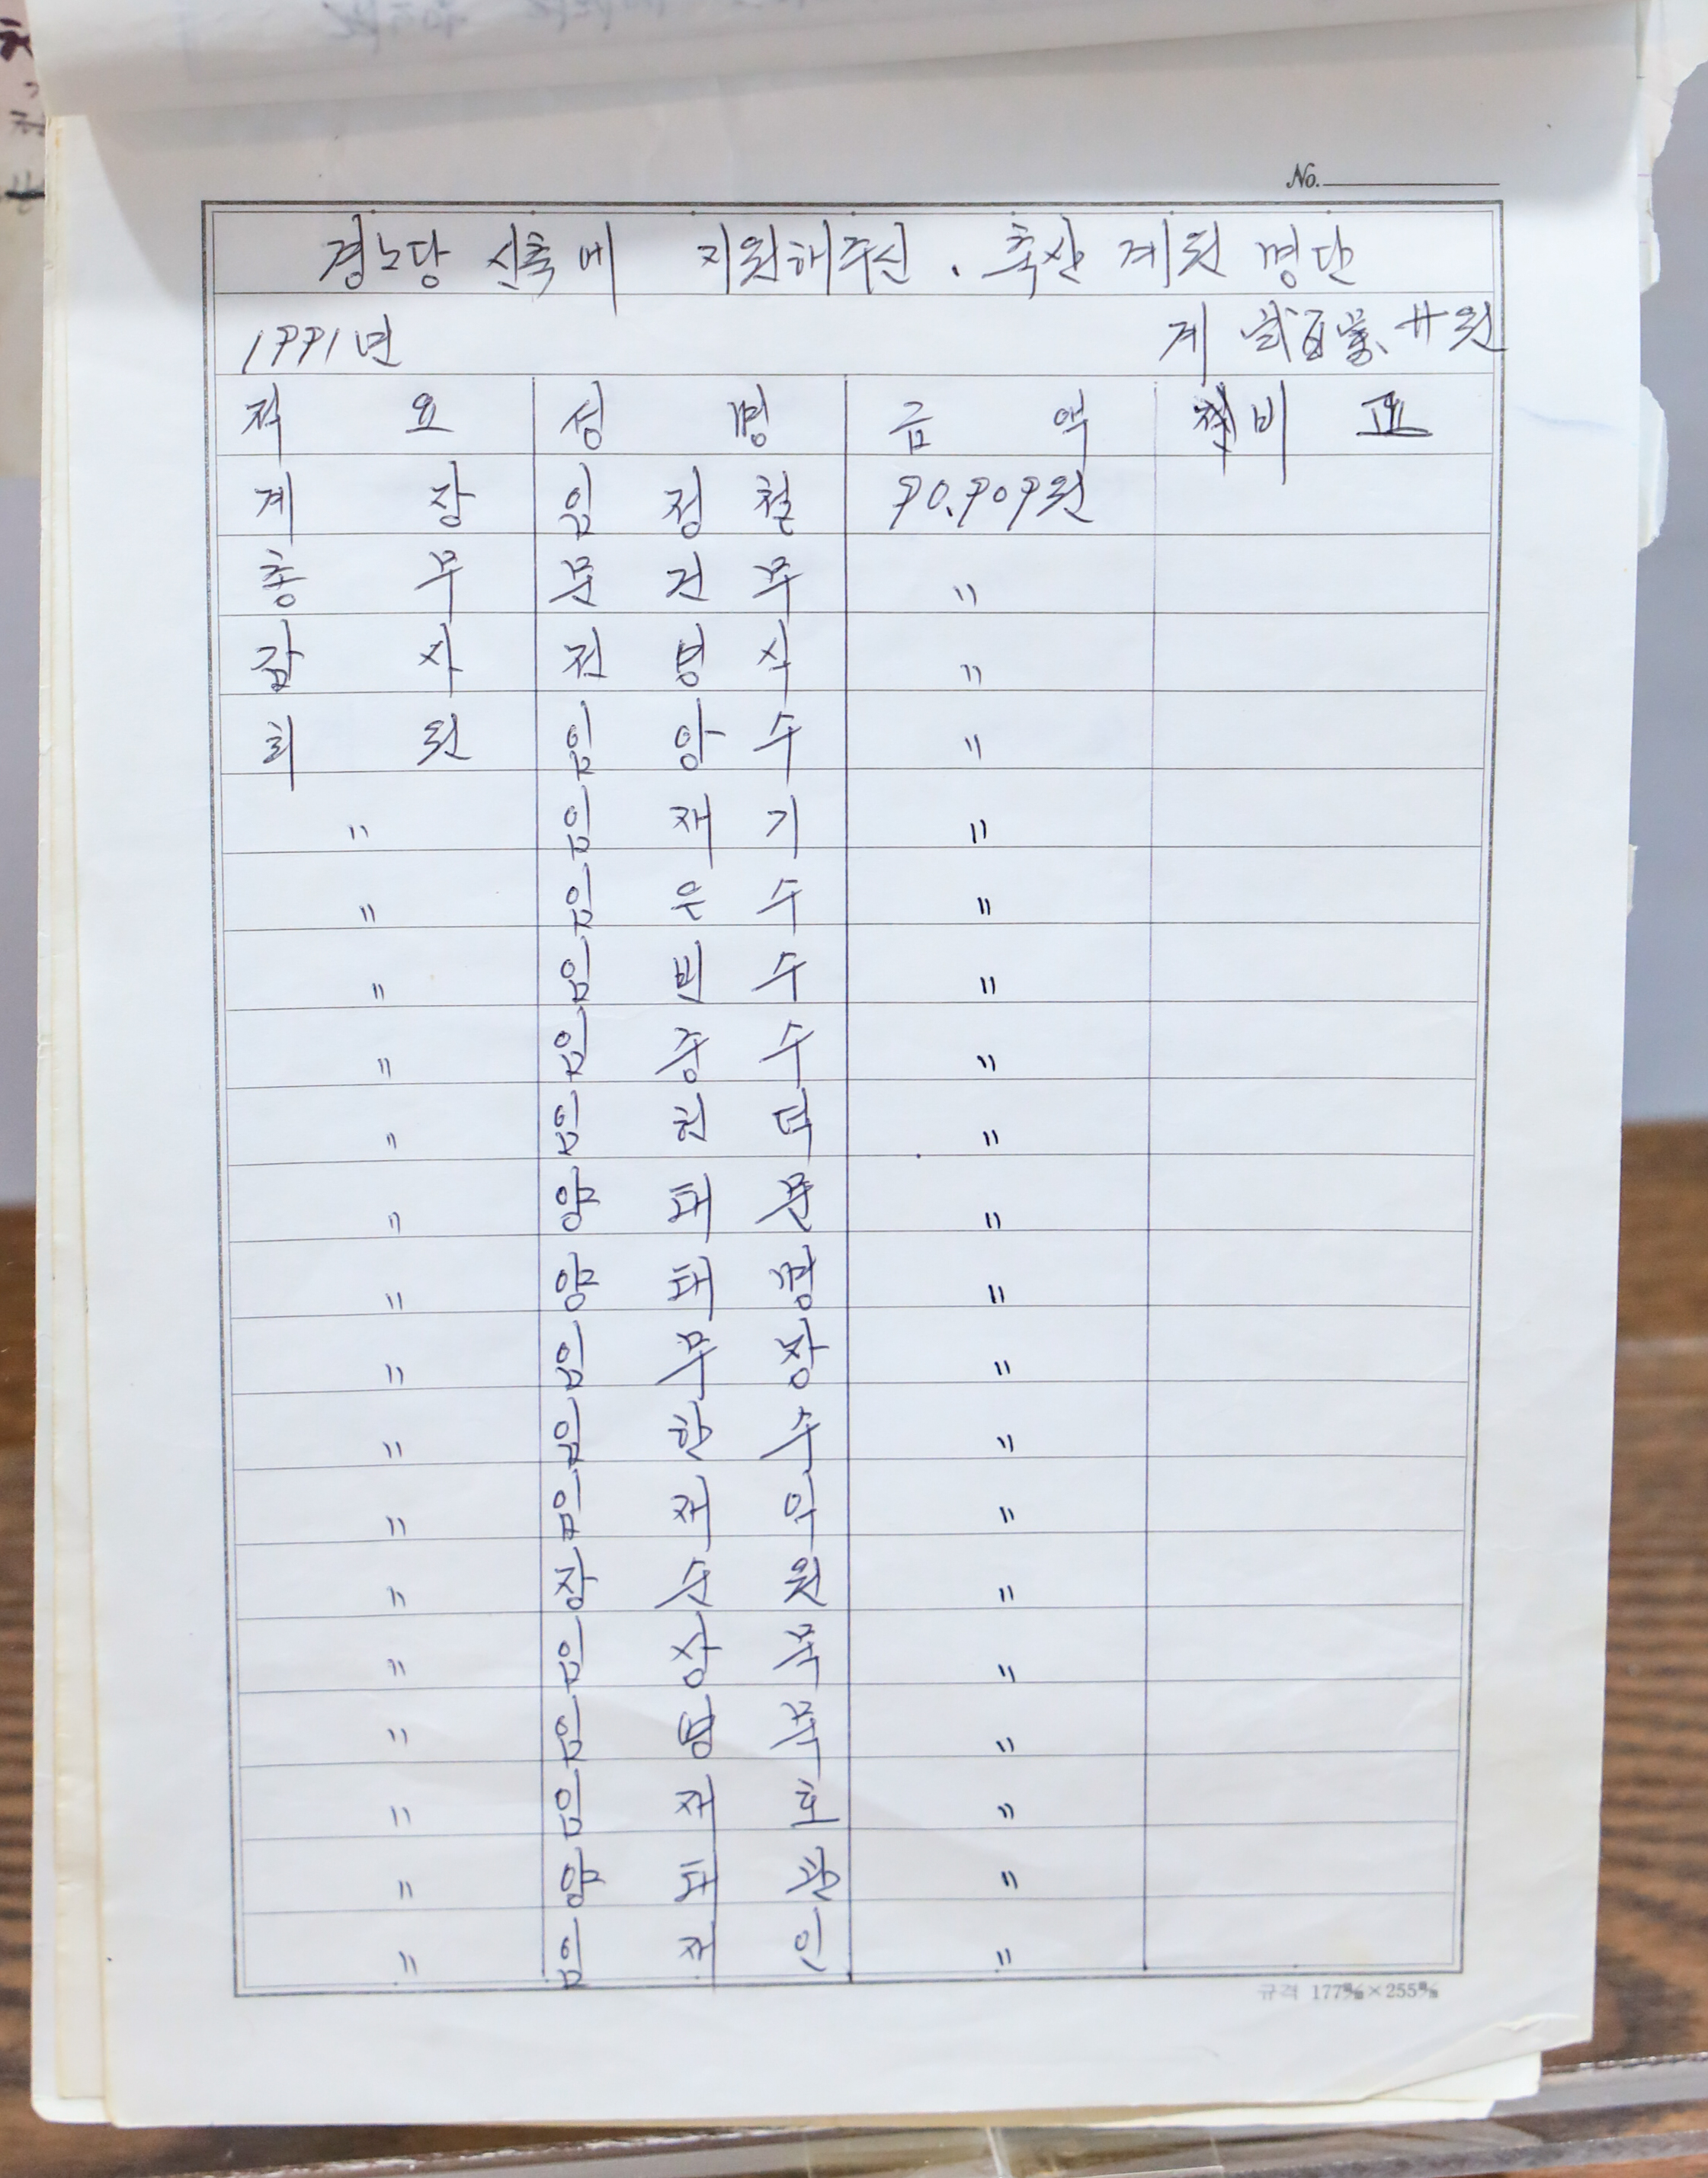 No.
경노당 신축에 지원해주신. 축산 계원 명단
1991년 계 貳百萬、廿원
적요 성명 금액 비고
계장 임정철 90.909원
총무 문건무 〃
감사 전병식 〃
회원 임양수 〃
〃 임재기 〃
〃 임은수 〃
〃 임빈수 〃
〃 임종수 〃
〃 임헌덕 〃
〃 양태문 〃
〃 양태 〃
〃 임무상 〃
〃 임한수 〃
〃 임재우 〃
〃 장수원 〃
〃 임상묵 〃
〃 임 묵 〃
〃 임재호 〃
〃 양태 〃
〃 임재인 〃
규격 177㎜×255㎜